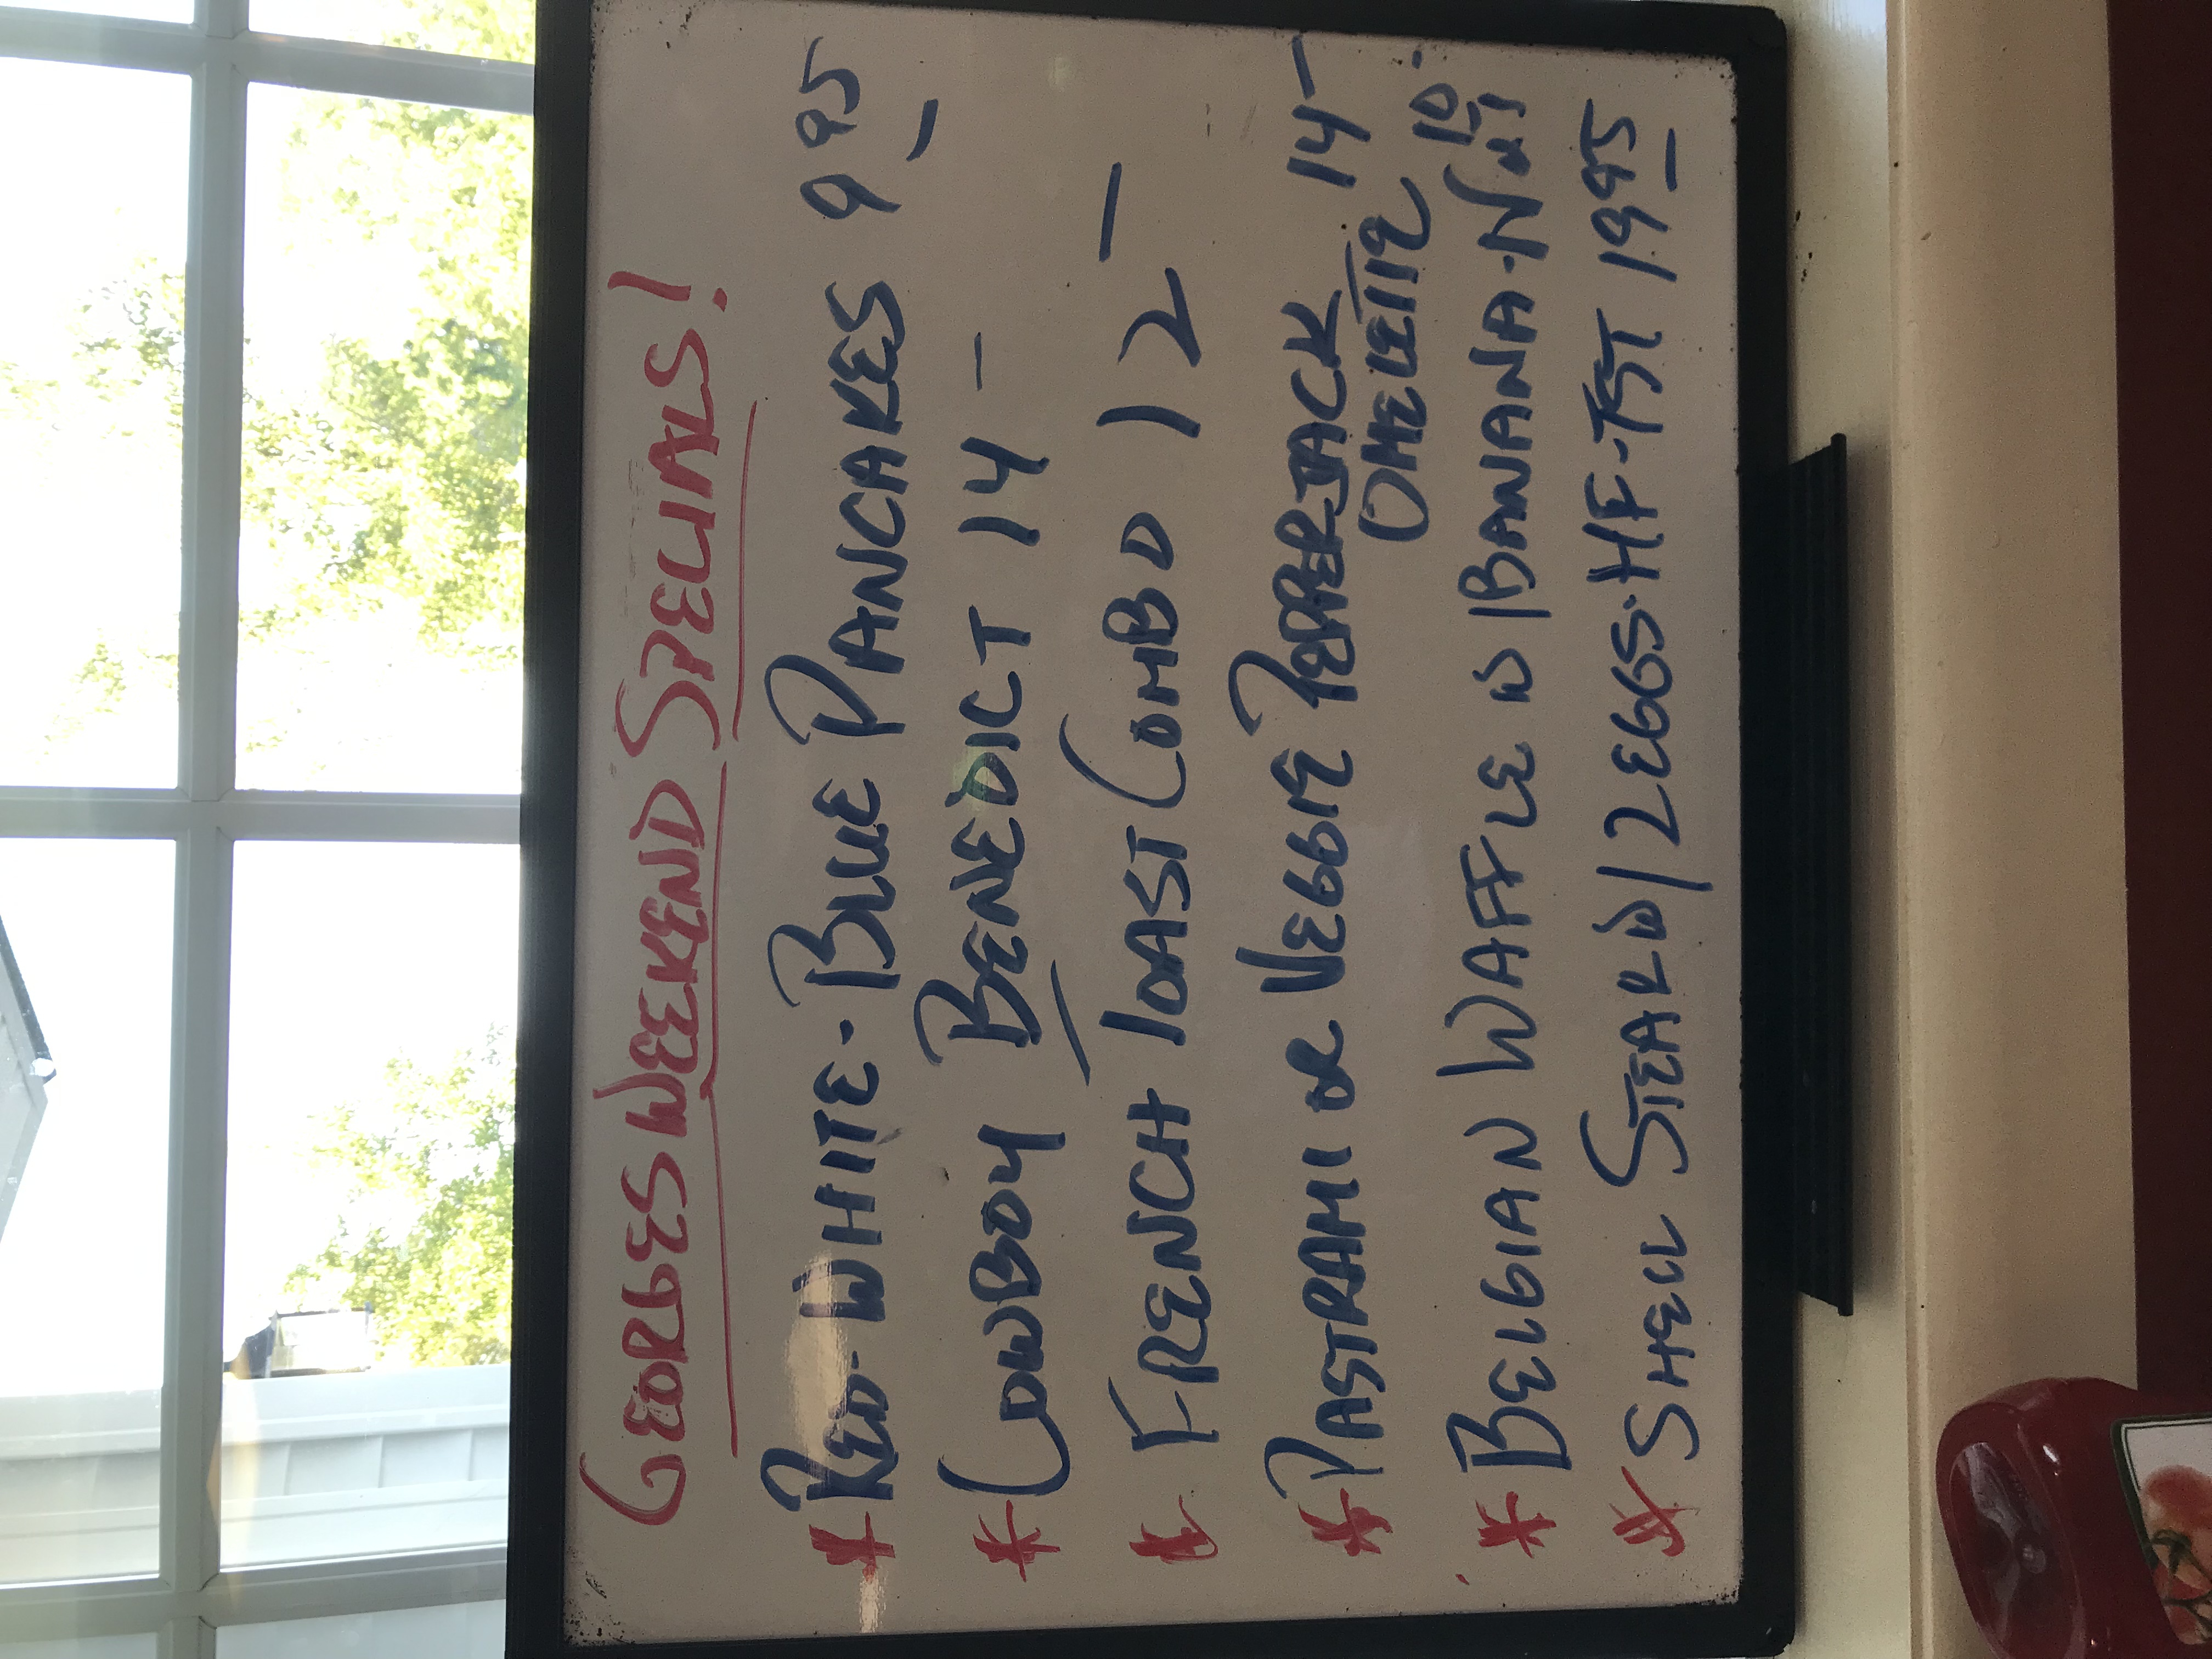 GEORGES WEEKEND SPECIALS!
* RED-WHITE-BLUE PANCAKES 9 95
* COWBOY BENEDICT 14 -
* FRENCH TOAST COMBO 12 -
* PASTRAMI OR VEGGIE PEPPERJACK 14-
OMELETTE
* BELGIAN WAFFLE W/BANANA-NUT 10-
* SHELL STEAK W/2EGGS-HF-TST 19 95